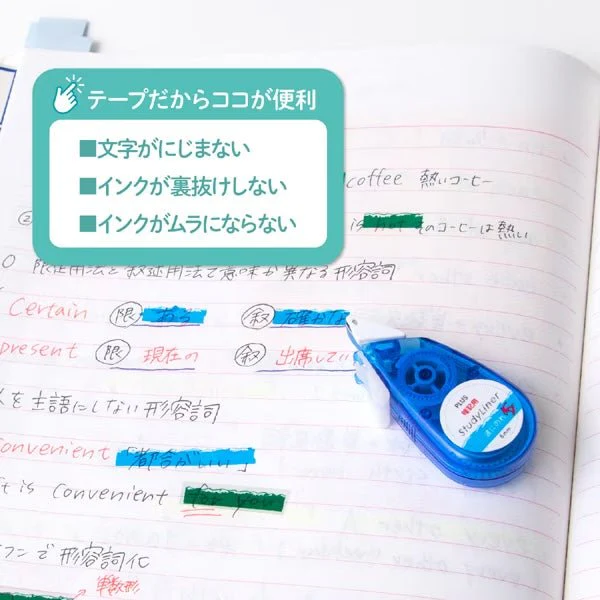 テープだからココが便利
■文字がにじまない
■インクが裏抜けしない
■インクがムラにならない
coffee 熱いコーヒー
is hot そのコーヒーは熱い
限定用法と叙述用法で意味が異なる形容詞
Certain 限 ある 叙 確かな
present 限 現在の 叙 出席してい
を主語にしない形容詞
convenient 「都合がいい」
t is convenient for you
で形容詞化
単数形
PLUS
暗記用
StudyLiner
6mm